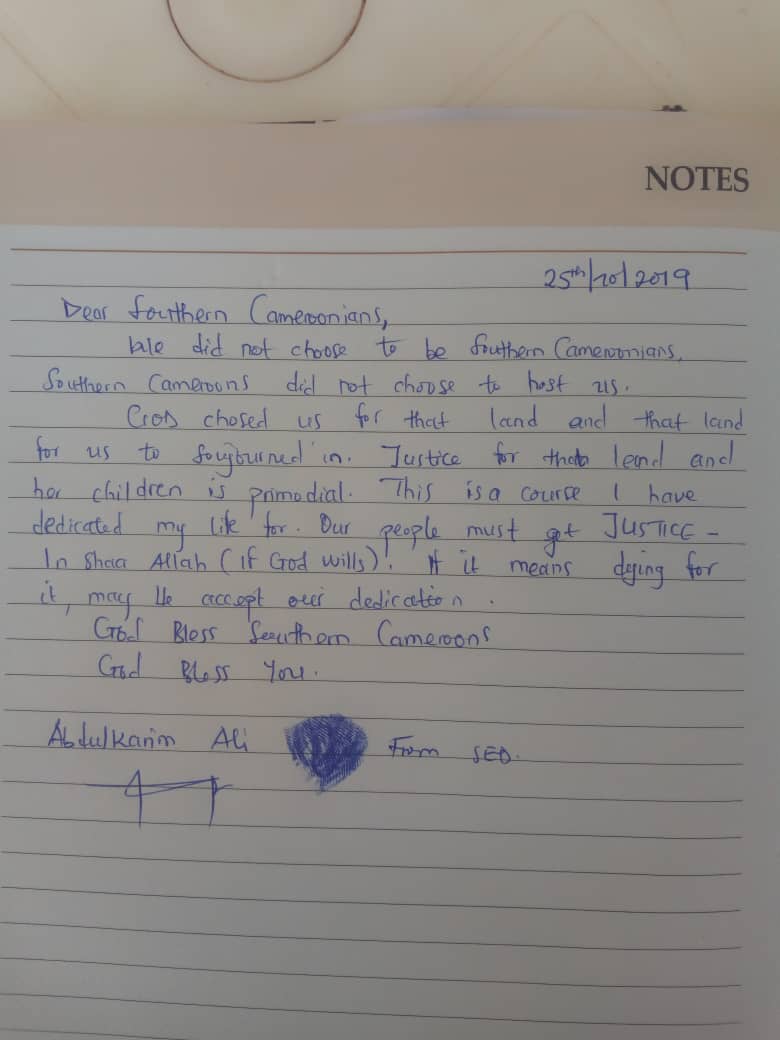 NOTES
25th/10/2019
Dear Southern Cameroonians,
We did not choose to be Southern Cameroonians,
Southern Cameroons did not choose to host us.
God chosed us for that land and that land
for us to soujourned in. Justice for that land and
her children is primodial. This is a course I have
dedicated my life for. Our people must get JUSTICE -
In Shaa Allah (if God wills)! If it means dying for
it, may He accept our dedication.
God Bless Southern Cameroons
God Bless You.
Abdulkarim Ali From SED.